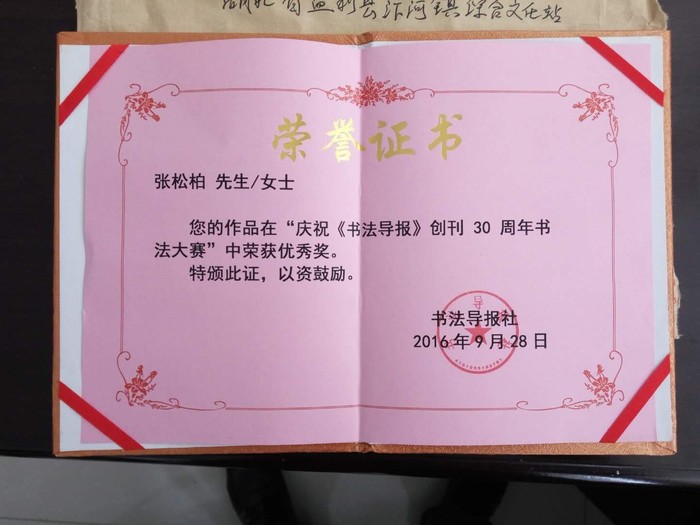 湖北省监利县汴河镇综合文化站
荣誉证书
张松柏 先生/女士
您的作品在“庆祝《书法导报》创刊 30 周年书
法大赛”中荣获优秀奖。
特颁此证，以资鼓励。
书法导报社
2016 年 9 月 28 日